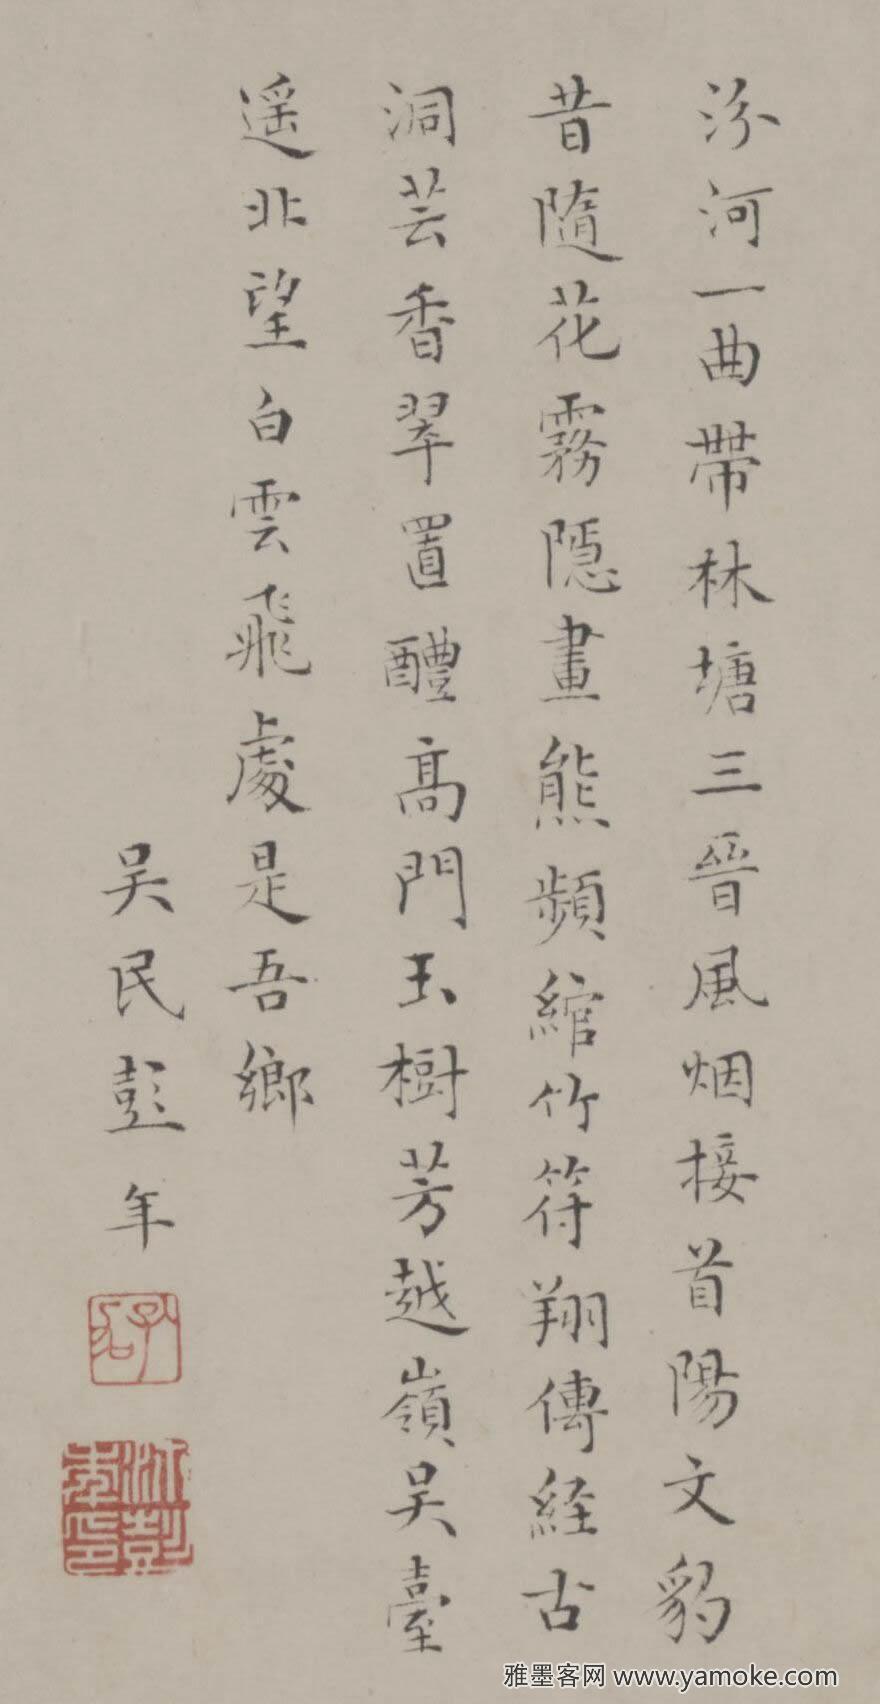 汾河一曲帶林塘三晉風烟接首陽文豹
昔隨花霧隱畫熊頻綰竹符翔傳経古
洞芸香翠置醴高門玉樹芳越嶺吴臺
遥北望白雲飛處是吾鄉
吴民彭年
沇彭年印
雅墨客网 www.yamoke.com